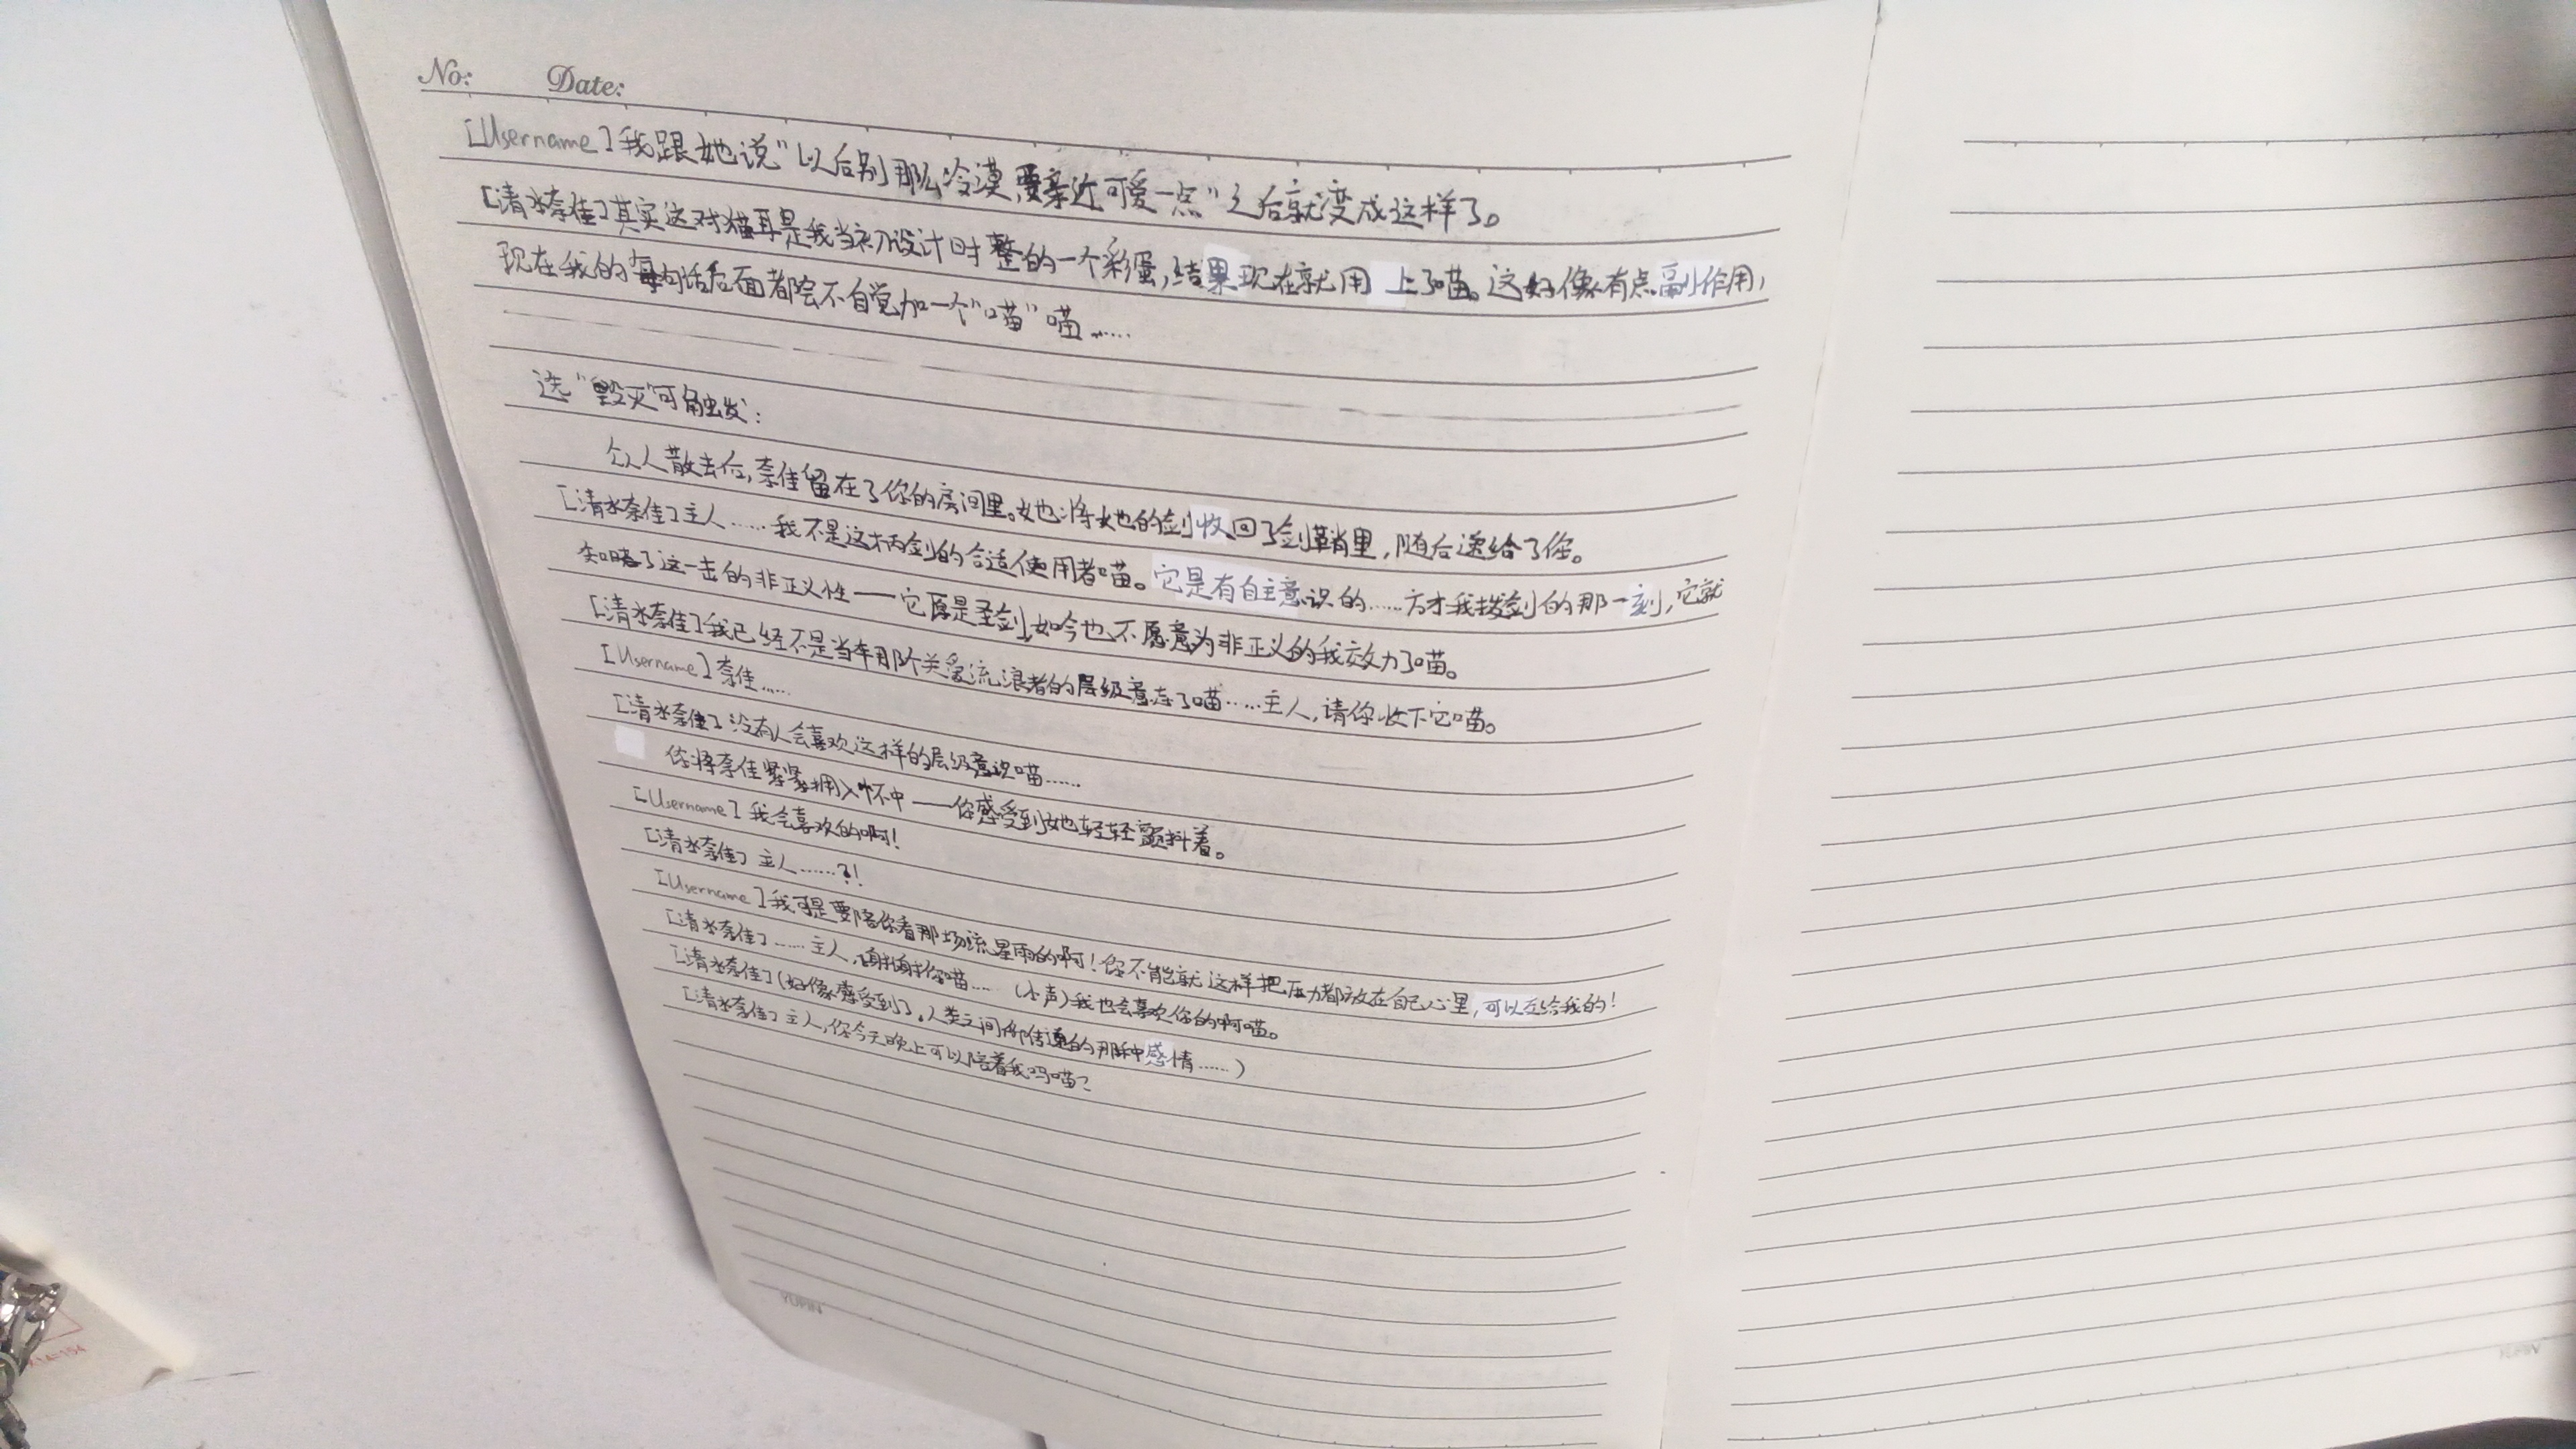 No: Date:
[Username]我跟她说"以后别那么冷漠,要亲近可爱一点"之后就变成这样了。
[清水奈佳]其实这对猫耳是我当初设计时整的一个彩蛋,结果现在就用上了喵。这好像有点副作用,
现在我的每句话后面都会不自觉加一个"喵"喵……
选"毁灭"可触发:
众人散去后,奈佳留在了你的房间里。她将她的剑收回了剑鞘里,随后递给了你。
[清水奈佳]主人……我不是这柄剑的合适使用者喵。它是有自主意识的……方才我拔剑的那一刻,它就
知晓了这一击的非正义性——它原是圣剑,如今也不愿意为非正义的我效力了喵。
[清水奈佳]我已经不是当年那个关爱流浪者的层级意志了喵……主人,请你收下它喵。
[Username]奈佳……
[清水奈佳]没有人会喜欢这样的层级意识喵……
你将奈佳紧紧拥入怀中——你感受到她轻轻颤抖着。
[Username]我会喜欢的啊!
[清水奈佳]主人……?!
[Username]我可是要陪你看那场流星雨的啊!你不能就这样把压力都放在自己心里,可以交给我的!
[清水奈佳]……主人,谢谢你喵……(小声)我也会喜欢你的啊喵。
[清水奈佳](好像感受到了,人类之间所传递的那种感情……)
[清水奈佳]主人,你今天晚上可以陪着我吗喵?
YUPIN